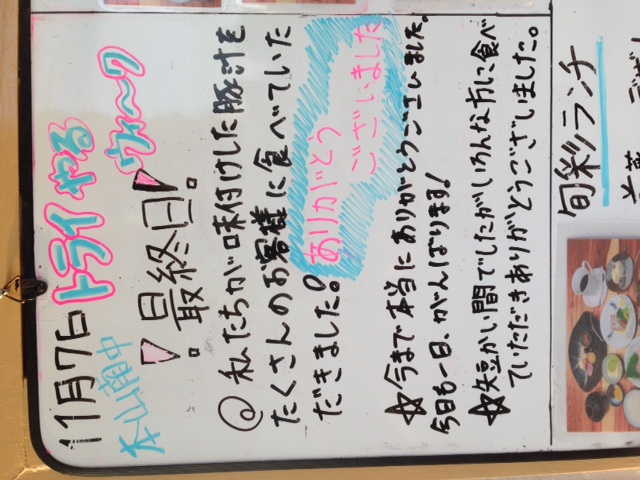 11月7日 トライやる
ウィ〜ク
本山南中
！最終日！
@私たちが味付けした豚汁を
たくさんのお客様に食べていた
だきました。
ありがとう
ございました
☆今まで本当にありがとうございました。
今日も一日、がんばります！
☆短かい間でしたがいろんな方に食べ
ていただきありがとうございました。
旬彩ランチ